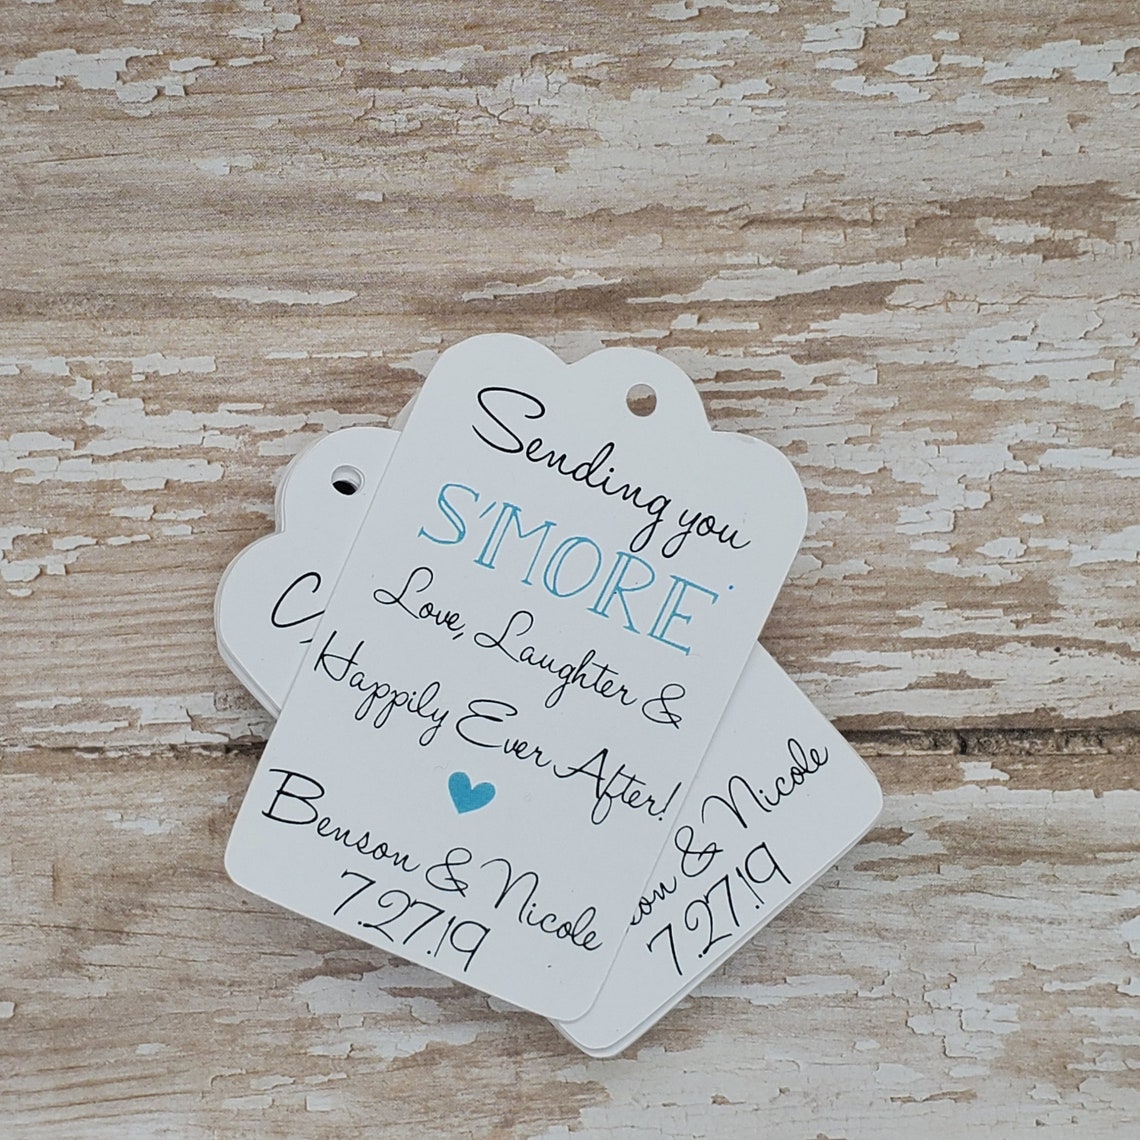 Sending you
S'MORE
Love, Laughter &
Happily Ever After!
Benson & Nicole
7.27.19
& Nicole
7.27.19